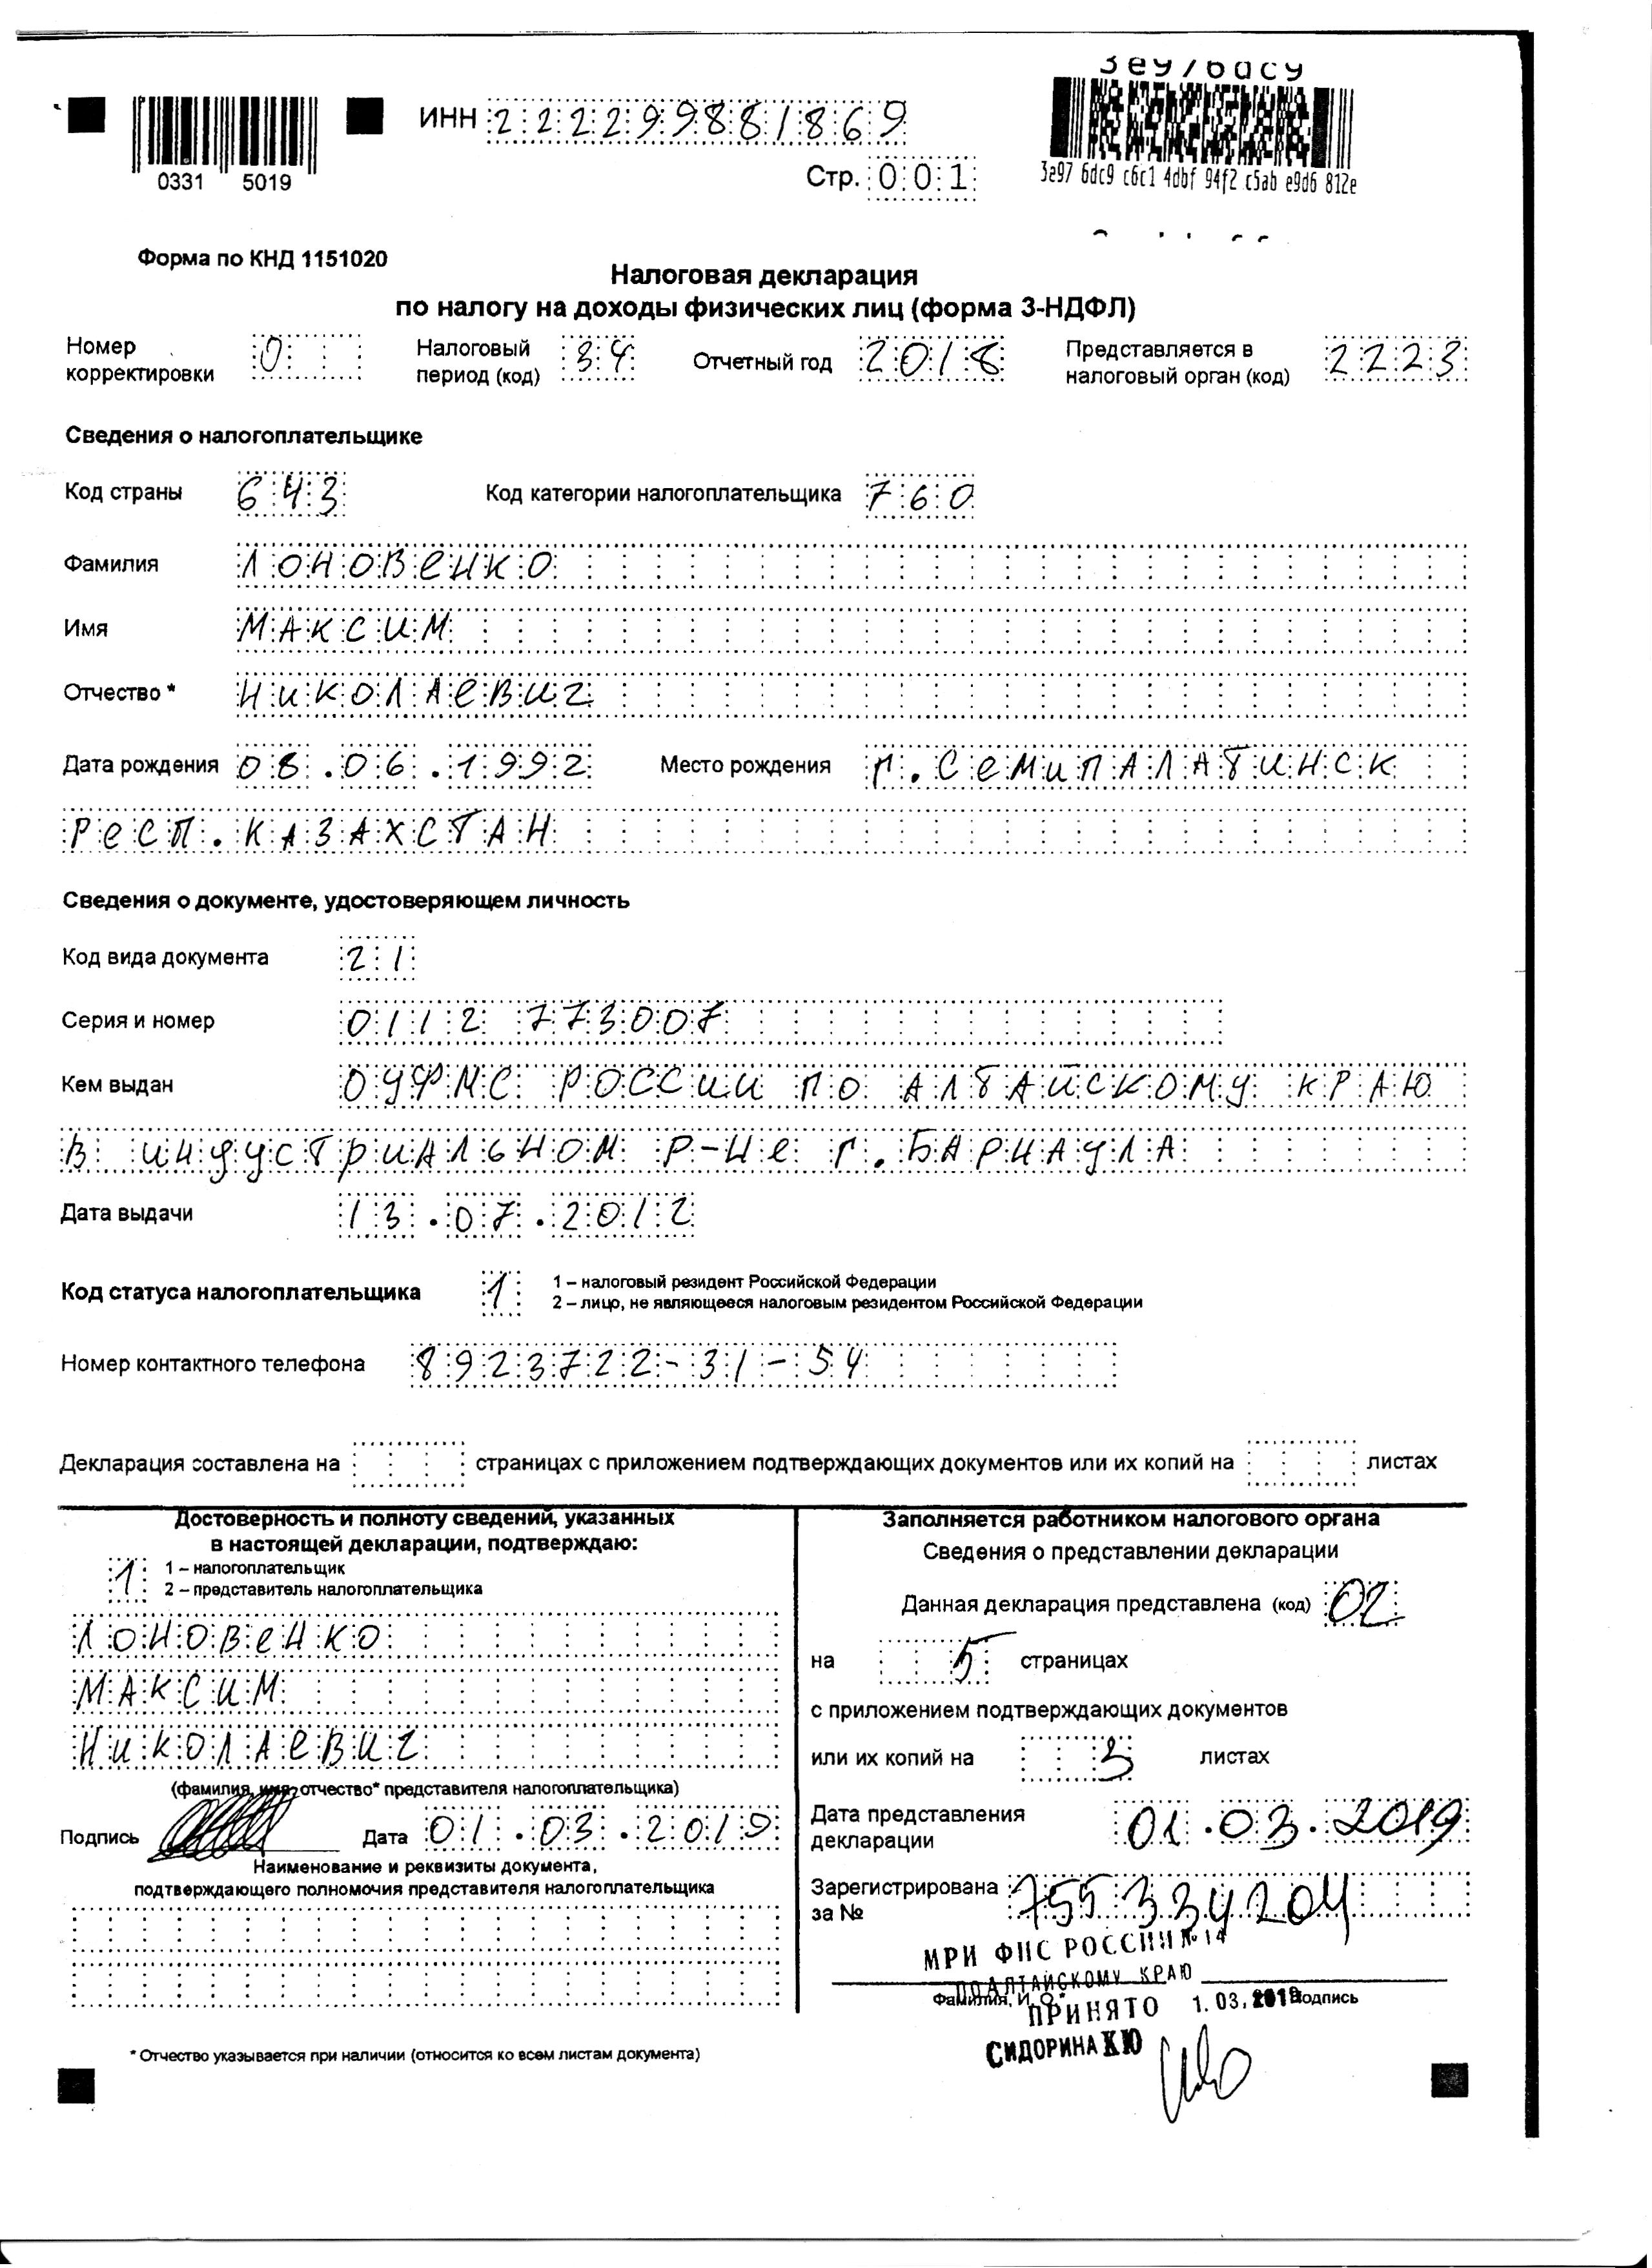 3e976dc9
ИНН 222299881869
0331 5019
Стр. 001
3e97 6dc9 c6c1 4dbf 94f2 c5ab e9d6 812e
Форма по КНД 1151020
Налоговая декларация
по налогу на доходы физических лиц (форма 3-НДФЛ)
Номер корректировки 0 Налоговый период (код) 34 Отчетный год 2018 Представляется в налоговый орган (код) 2223
Сведения о налогоплательщике
Код страны 643 Код категории налогоплательщика 760
Фамилия ЛОНОВЕНКО
Имя МАКСИМ
Отчество * НИКОЛАЕВИЧ
Дата рождения 08.06.1992 Место рождения Г. СЕМИПАЛАТИНСК
РЕСП. КАЗАХСТАН
Сведения о документе, удостоверяющем личность
Код вида документа 21
Серия и номер 0112 773007
Кем выдан ОУФМС РОССИИ ПО АЛТАЙСКОМУ КРАЮ
В ИНДУСТРИАЛЬНОМ Р-НЕ Г. БАРНАУЛА
Дата выдачи 13.07.2012
Код статуса налогоплательщика 1 1 – налоговый резидент Российской Федерации
2 – лицо, не являющееся налоговым резидентом Российской Федерации
Номер контактного телефона 8923722-31-54
Декларация составлена на страницах с приложением подтверждающих документов или их копий на листах
Достоверность и полноту сведений, указанных
в настоящей декларации, подтверждаю:
1 1 – налогоплательщик
2 – представитель налогоплательщика
ЛОНОВЕНКО
МАКСИМ
НИКОЛАЕВИЧ
(фамилия, имя, отчество* представителя налогоплательщика)
Подпись Дата 01.03.2019
Наименование и реквизиты документа,
подтверждающего полномочия представителя налогоплательщика
Заполняется работником налогового органа
Сведения о представлении декларации
Данная декларация представлена (код) 02
на 5 страницах
с приложением подтверждающих документов
или их копий на 3 листах
Дата представления
декларации 01.03.2019
Зарегистрирована
за № 755334204
МРИ ФНС РОССИИ № 14
ПО АЛТАЙСКОМУ КРАЮ
Фамилия, И. О.* Подпись
ПРИНЯТО 1.03.2019
СИДОРИНА Х Ю
* Отчество указывается при наличии (относится ко всем листам документа)